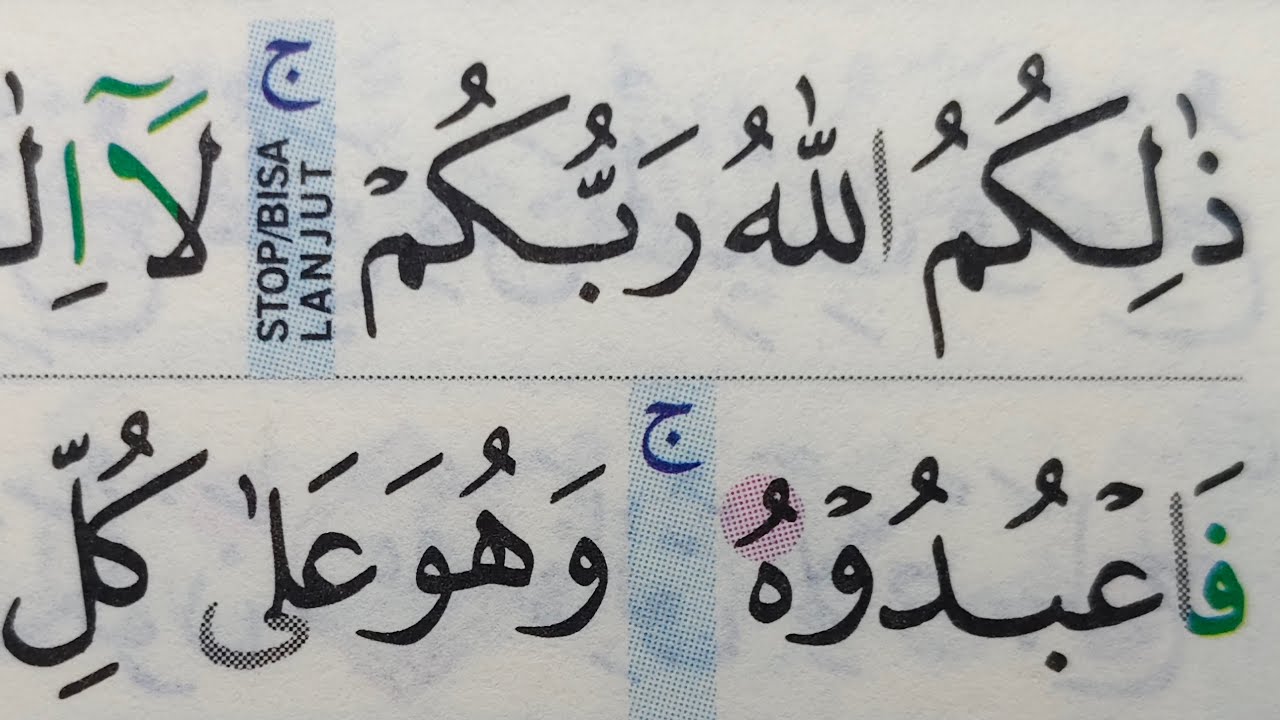 ذٰلِكُمُ اللّٰهُ رَبُّكُمْ ۚ لَآ اِلٰ
STOP/BISA
LANJUT
فَاعْبُدُوْهُ ۚ وَهُوَ عَلٰى كُلِّ